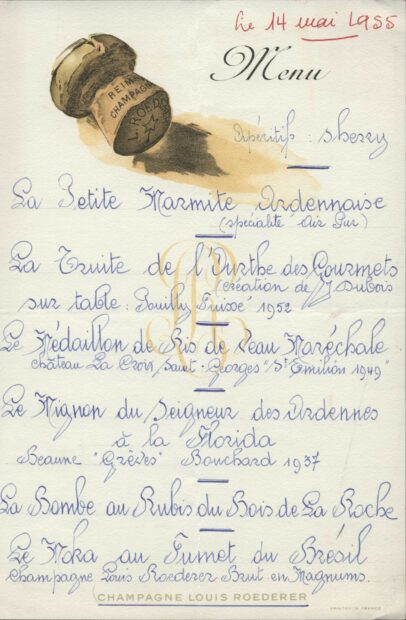 Le 14 mai 1955
Menu
REIMS
CHAMPAGNE
L. ROEDERER
Apéritif : sherry
La Petite Marmite Ardennaise
(spécialité Air Pur)
La Truite de l'Ourthe des Gourmets
(création de J Dubois
sur table : Pouilly Fuissé 1952
Le Médaillon de Ris de Veau Maréchale
château La Croix Saint-Georges "St Emilion 1949"
Le Mignon du Seigneur des Ardennes
à la Florida
Beaune "Grèves" Bouchard 1937
La Bombe au Rubis du Bois de La Roche
Le Moka au Fumet du Brésil
Champagne Louis Roederer Brut en Magnums.
CHAMPAGNE LOUIS ROEDERER
PRINTED IN FRANCE